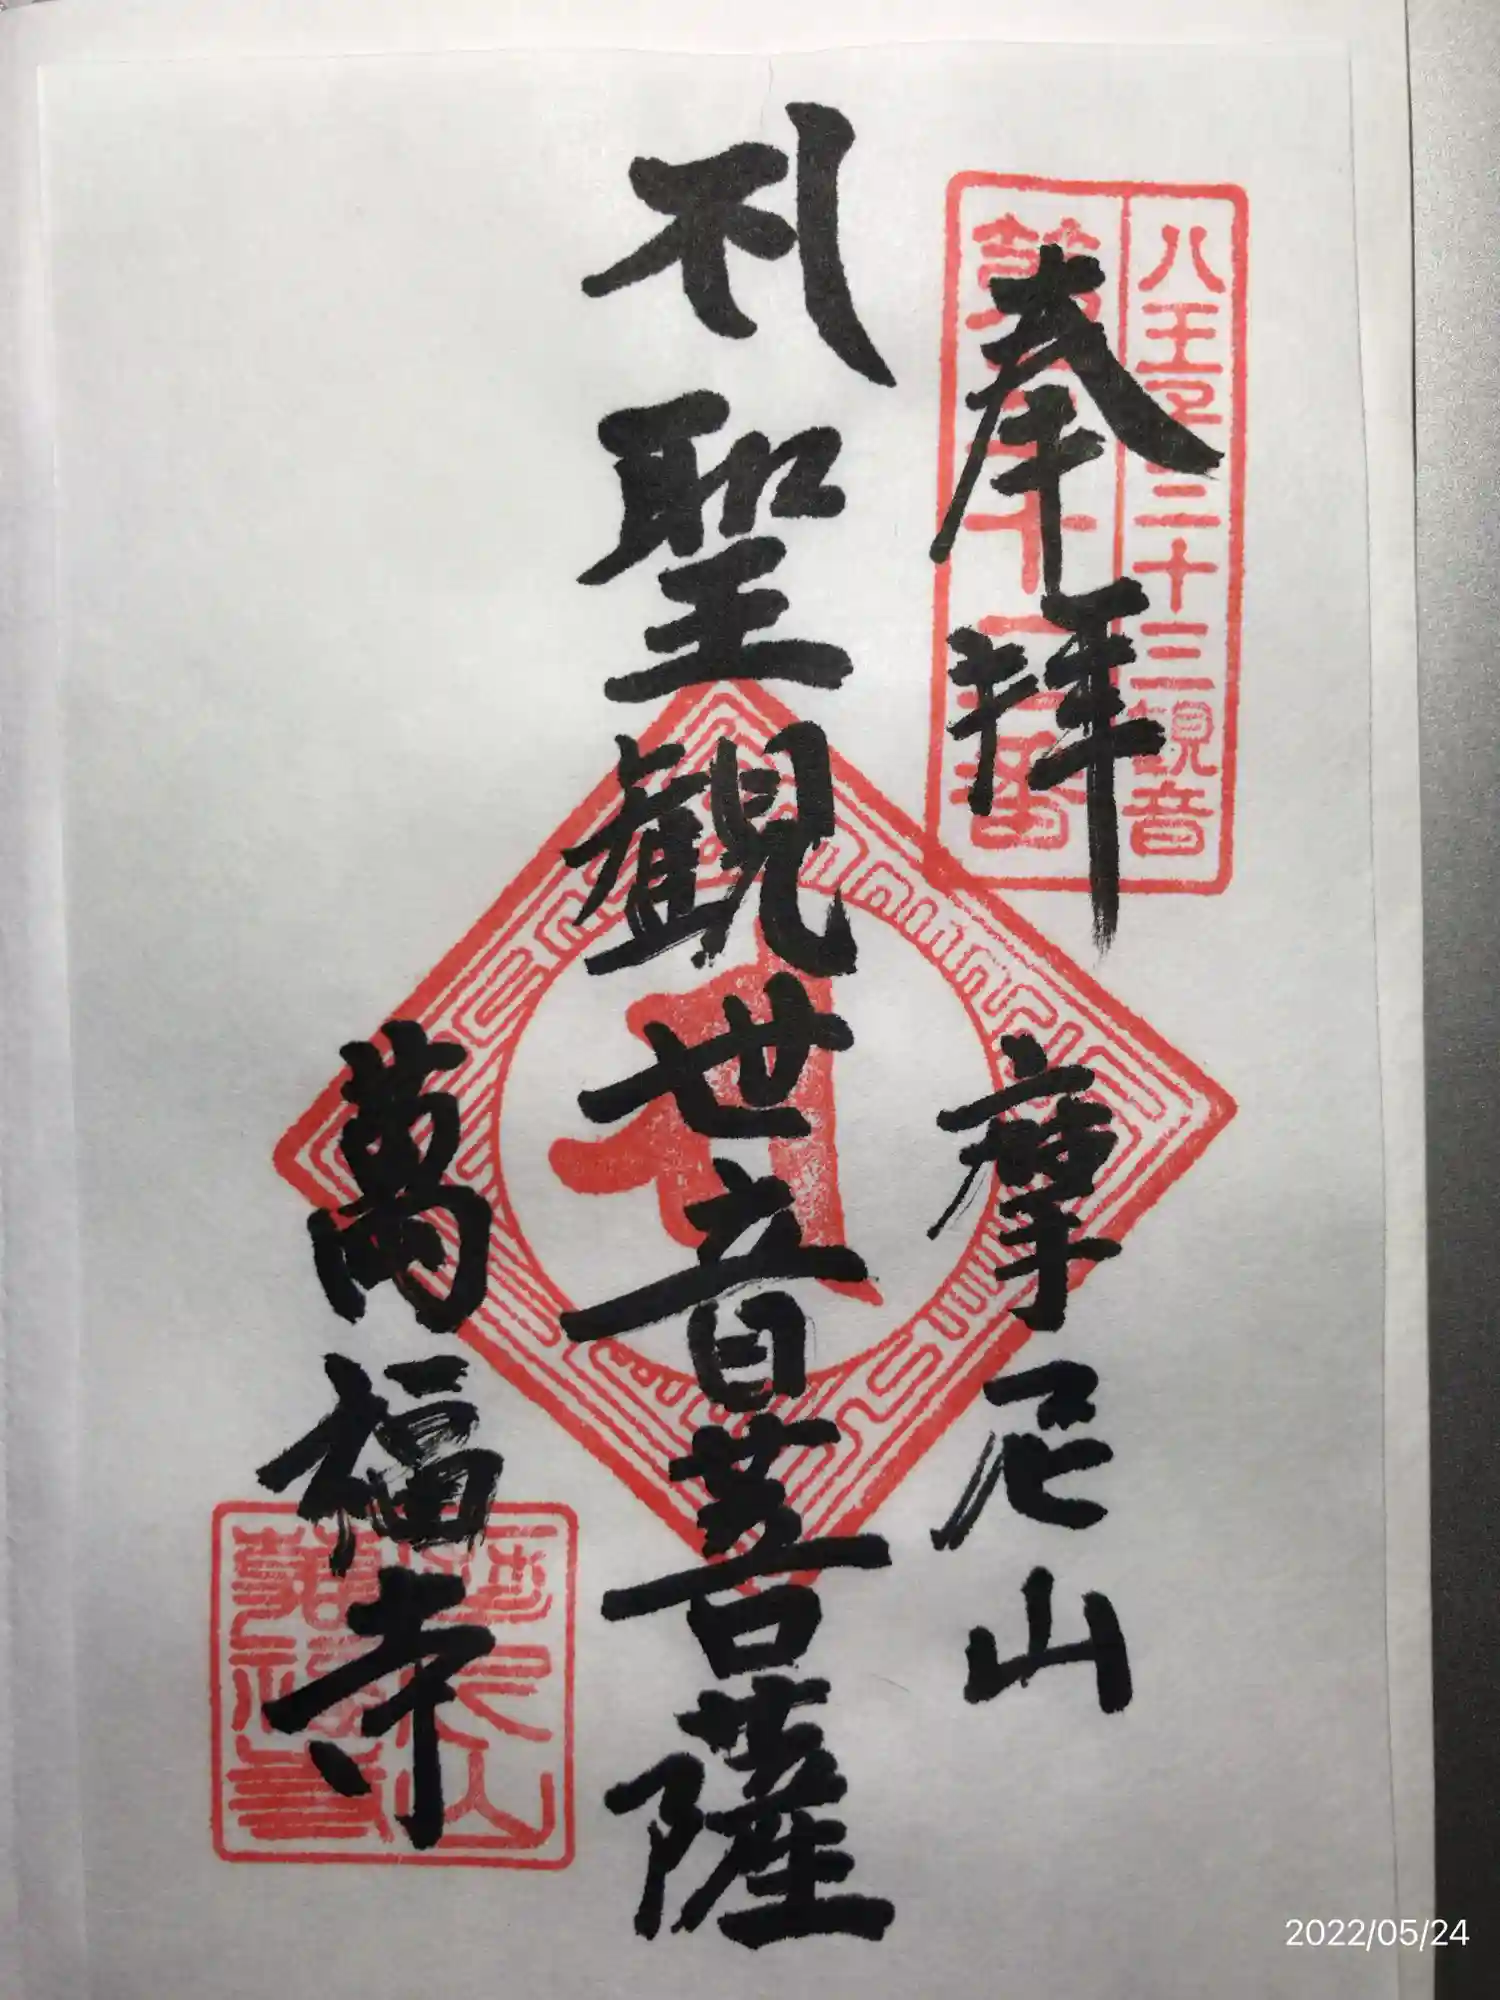 八王子三十三観音
奉拝
摩尼山
聖観世音菩薩
萬福寺
2022/05/24